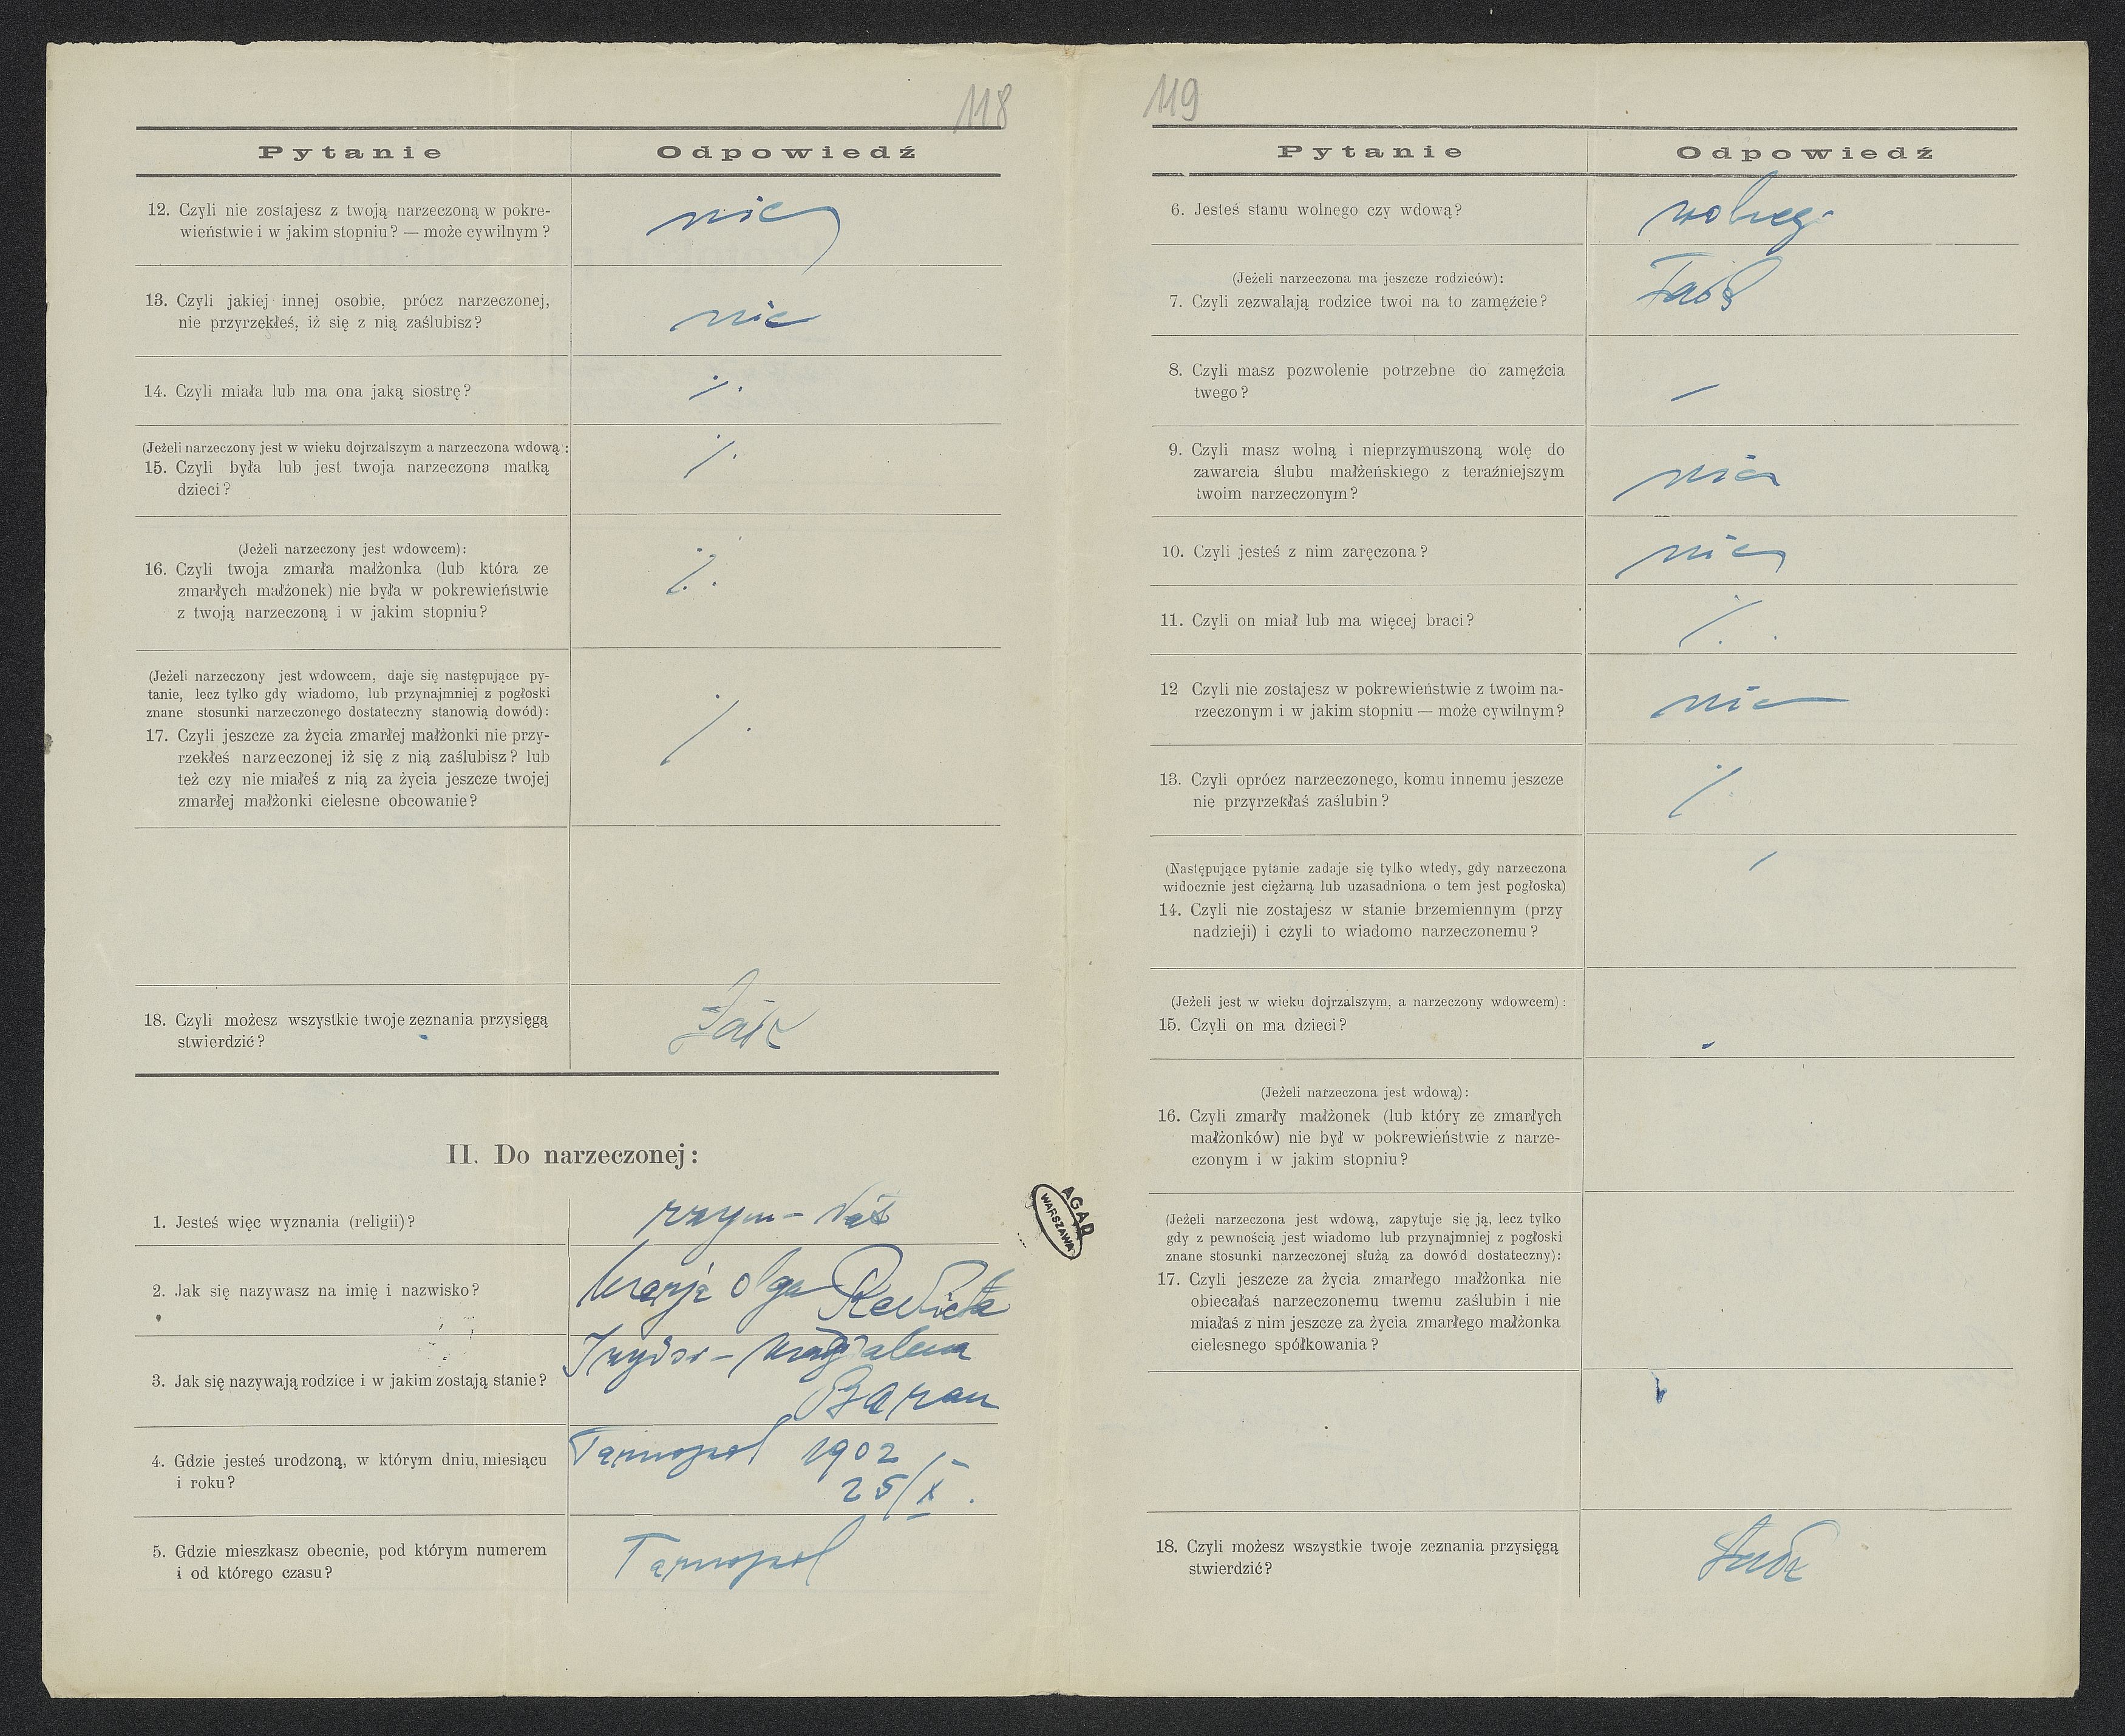 118
Pytanie Odpowiedź
12. Czyli nie zostajesz z twoją narzeczoną w pokre-
wieństwie i w jakim stopniu? — może cywilnym?
nie
13. Czyli jakiej innej osobie, prócz narzeczonej,
nie przyrzekłeś, iż się z nią zaślubisz?
nie
14. Czyli miała lub ma ona jaką siostrę?
(Jeżeli narzeczony jest w wieku dojrzalszym a narzeczona wdową:
15. Czyli była lub jest twoja narzeczona matką
dzieci?
(Jeżeli narzeczony jest wdowcem):
16. Czyli twoja zmarła małżonka (lub która ze
zmarłych małżonek) nie była w pokrewieństwie
z twoją narzeczoną i w jakim stopniu?
(Jeżeli narzeczony jest wdowcem, daje się następujące py-
tanie, lecz tylko gdy wiadomo, lub przynajmniej z pogłoski
znane stosunki narzeczonego dostateczny stanowią dowód):
17. Czyli jeszcze za życia zmarłej małżonki nie przy-
rzekłeś narzeczonej iż się z nią zaślubisz? lub
też czy nie miałeś z nią za życia jeszcze twojej
zmarłej małżonki cielesne obcowanie?
18. Czyli możesz wszystkie twoje zeznania przysięgą
stwierdzić?
II. Do narzeczonej:
1. Jesteś więc wyznania (religii)?
rzym-
2. Jak się nazywasz na imię i nazwisko?
Marja Olga
3. Jak się nazywają rodzice i w jakim zostają stanie?
Izydor - Magdalena
Baran
4. Gdzie jesteś urodzoną, w którym dniu, miesiącu
i roku?
Tarnopol 1902
25/X.
5. Gdzie mieszkasz obecnie, pod którym numerem
i od którego czasu?
Tarnopol
AGAD
WARSZAWA
119
Pytanie Odpowiedź
6. Jesteś stanu wolnego czy wdową?
wolnego
(Jeżeli narzeczona ma jeszcze rodziców):
7. Czyli zezwalają rodzice twoi na to zamęźcie?
8. Czyli masz pozwolenie potrzebne do zamęźcia
twego?
—
9. Czyli masz wolną i nieprzymuszoną wolę do
zawarcia ślubu małżeńskiego z teraźniejszym
twoim narzeczonym?
nie
10. Czyli jesteś z nim zaręczona?
nie
11. Czyli on miał lub ma więcej braci?
12 Czyli nie zostajesz w pokrewieństwie z twoim na-
rzeczonym i w jakim stopniu — może cywilnym?
nie
13. Czyli oprócz narzeczonego, komu innemu jeszcze
nie przyrzekłaś zaślubin?
(Następujące pytanie zadaje się tylko wtedy, gdy narzeczona
widocznie jest ciężarną lub uzasadniona o tem jest pogłoska)
14. Czyli nie zostajesz w stanie brzemiennym (przy
nadzieji) i czyli to wiadomo narzeczonemu?
(Jeżeli jest w wieku dojrzalszym, a narzeczony wdowcem):
15. Czyli on ma dzieci?
(Jeżeli narzeczona jest wdową):
16. Czyli zmarły małżonek (lub który ze zmarłych
małżonków) nie był w pokrewieństwie z narze-
czonym i w jakim stopniu?
(Jeżeli narzeczona jest wdową, zapytuje się ją, lecz tylko
gdy z pewnością jest wiadomo lub przynajmniej z pogłoski
znane stosunki narzeczonej służą za dowód dostateczny):
17. Czyli jeszcze za życia zmarłego małżonka nie
obiecałaś narzeczonemu twemu zaślubin i nie
miałaś z nim jeszcze za życia zmarłego małżonka
cielesnego spółkowania?
18. Czyli możesz wszystkie twoje zeznania przysięgą
stwierdzić?